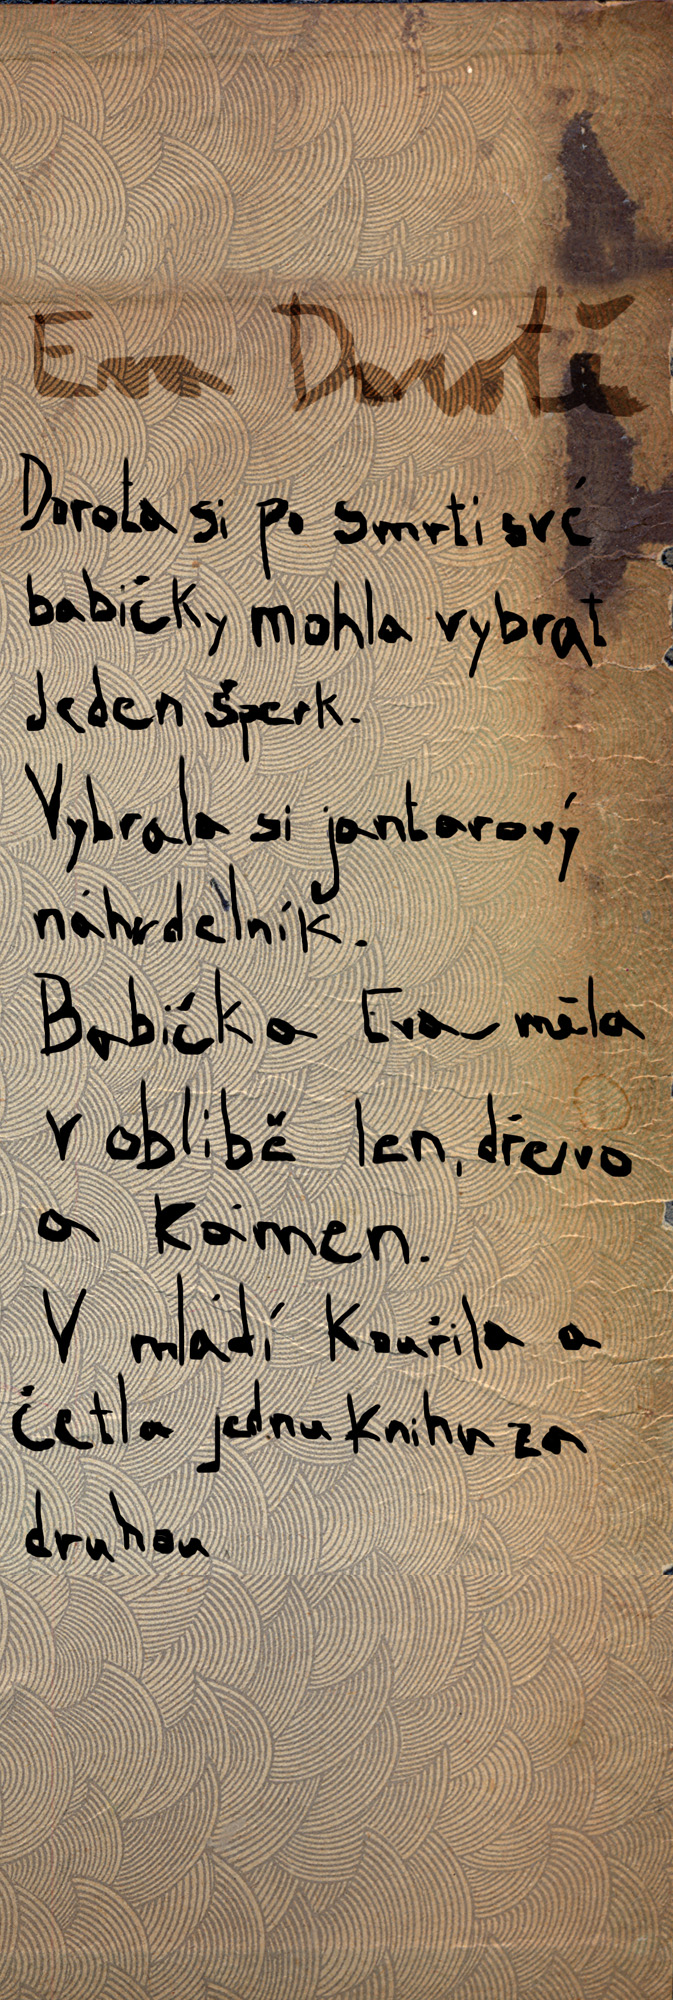 Eva Dorotě
Dorota si po smrti své
babičky mohla vybrat
Jeden šperk.
Vybrala si jantarový
náhrdelník.
Babička Eva měla
v oblibě len, dřevo
a Kámen.
V mládí Kouřila a
četla jednu Knihu za
druhou